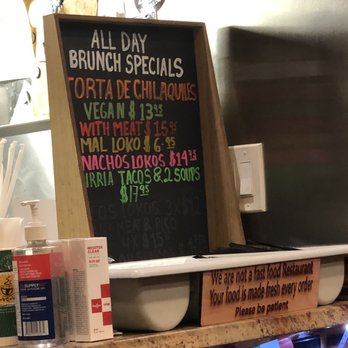 ALL DAY
BRUNCH SPECIALS
TORTA DE CHILAQUILES
VEGAN $ 13.95
WITH MEAT $ 15.95
MAL LOKO $ 6.95
NACHOS LOKOS $ 14.75
IRRIA TACOS & 2 SOUPS
$17.95
We are not a fast food Restaurant
Your food is made fresh every order
Please be patient